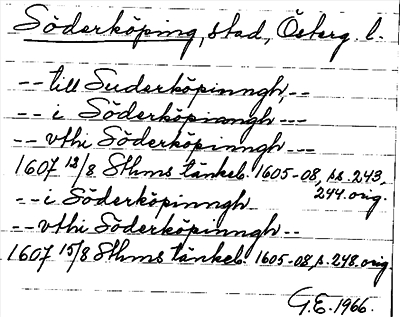 Söderköping, stad, Österg. l.
-- till Suderköpinngh, --
-- i Söderköpinngh ---
-- vthi Söderköpinngh ---
1607 13/8 Sthms tänkeb. 1605-08, ss. 243,
244. orig.
-- i Söderköpinngh
-- vthi Söderköpinngh --
1607 15/8 Sthms tänkeb. 1605-08, s. 248. orig.
G.E. 1966.